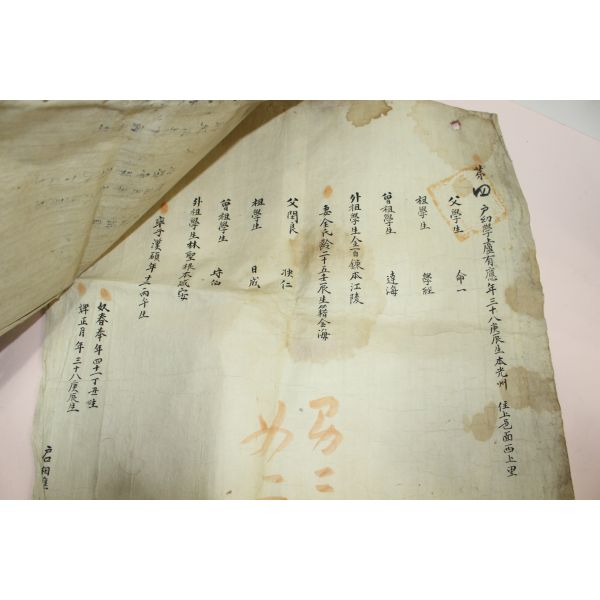 第四 戶幼學盧有應年三十八庚辰生本光州 住上邑面西上里
父學生 命一
祖學生 學經
曾祖學生 達海
外祖學生金百鍊本江陵
妻金氏齡二十五壬辰生籍金海
父閑良 獜仁
祖學生 日成
曾祖學生 時仙
外祖學生林聖根本咸安
率子漢碩年十二丙午生
奴春奉年四十一丁丑生
婢正月年三十八庚辰生
男二
女二